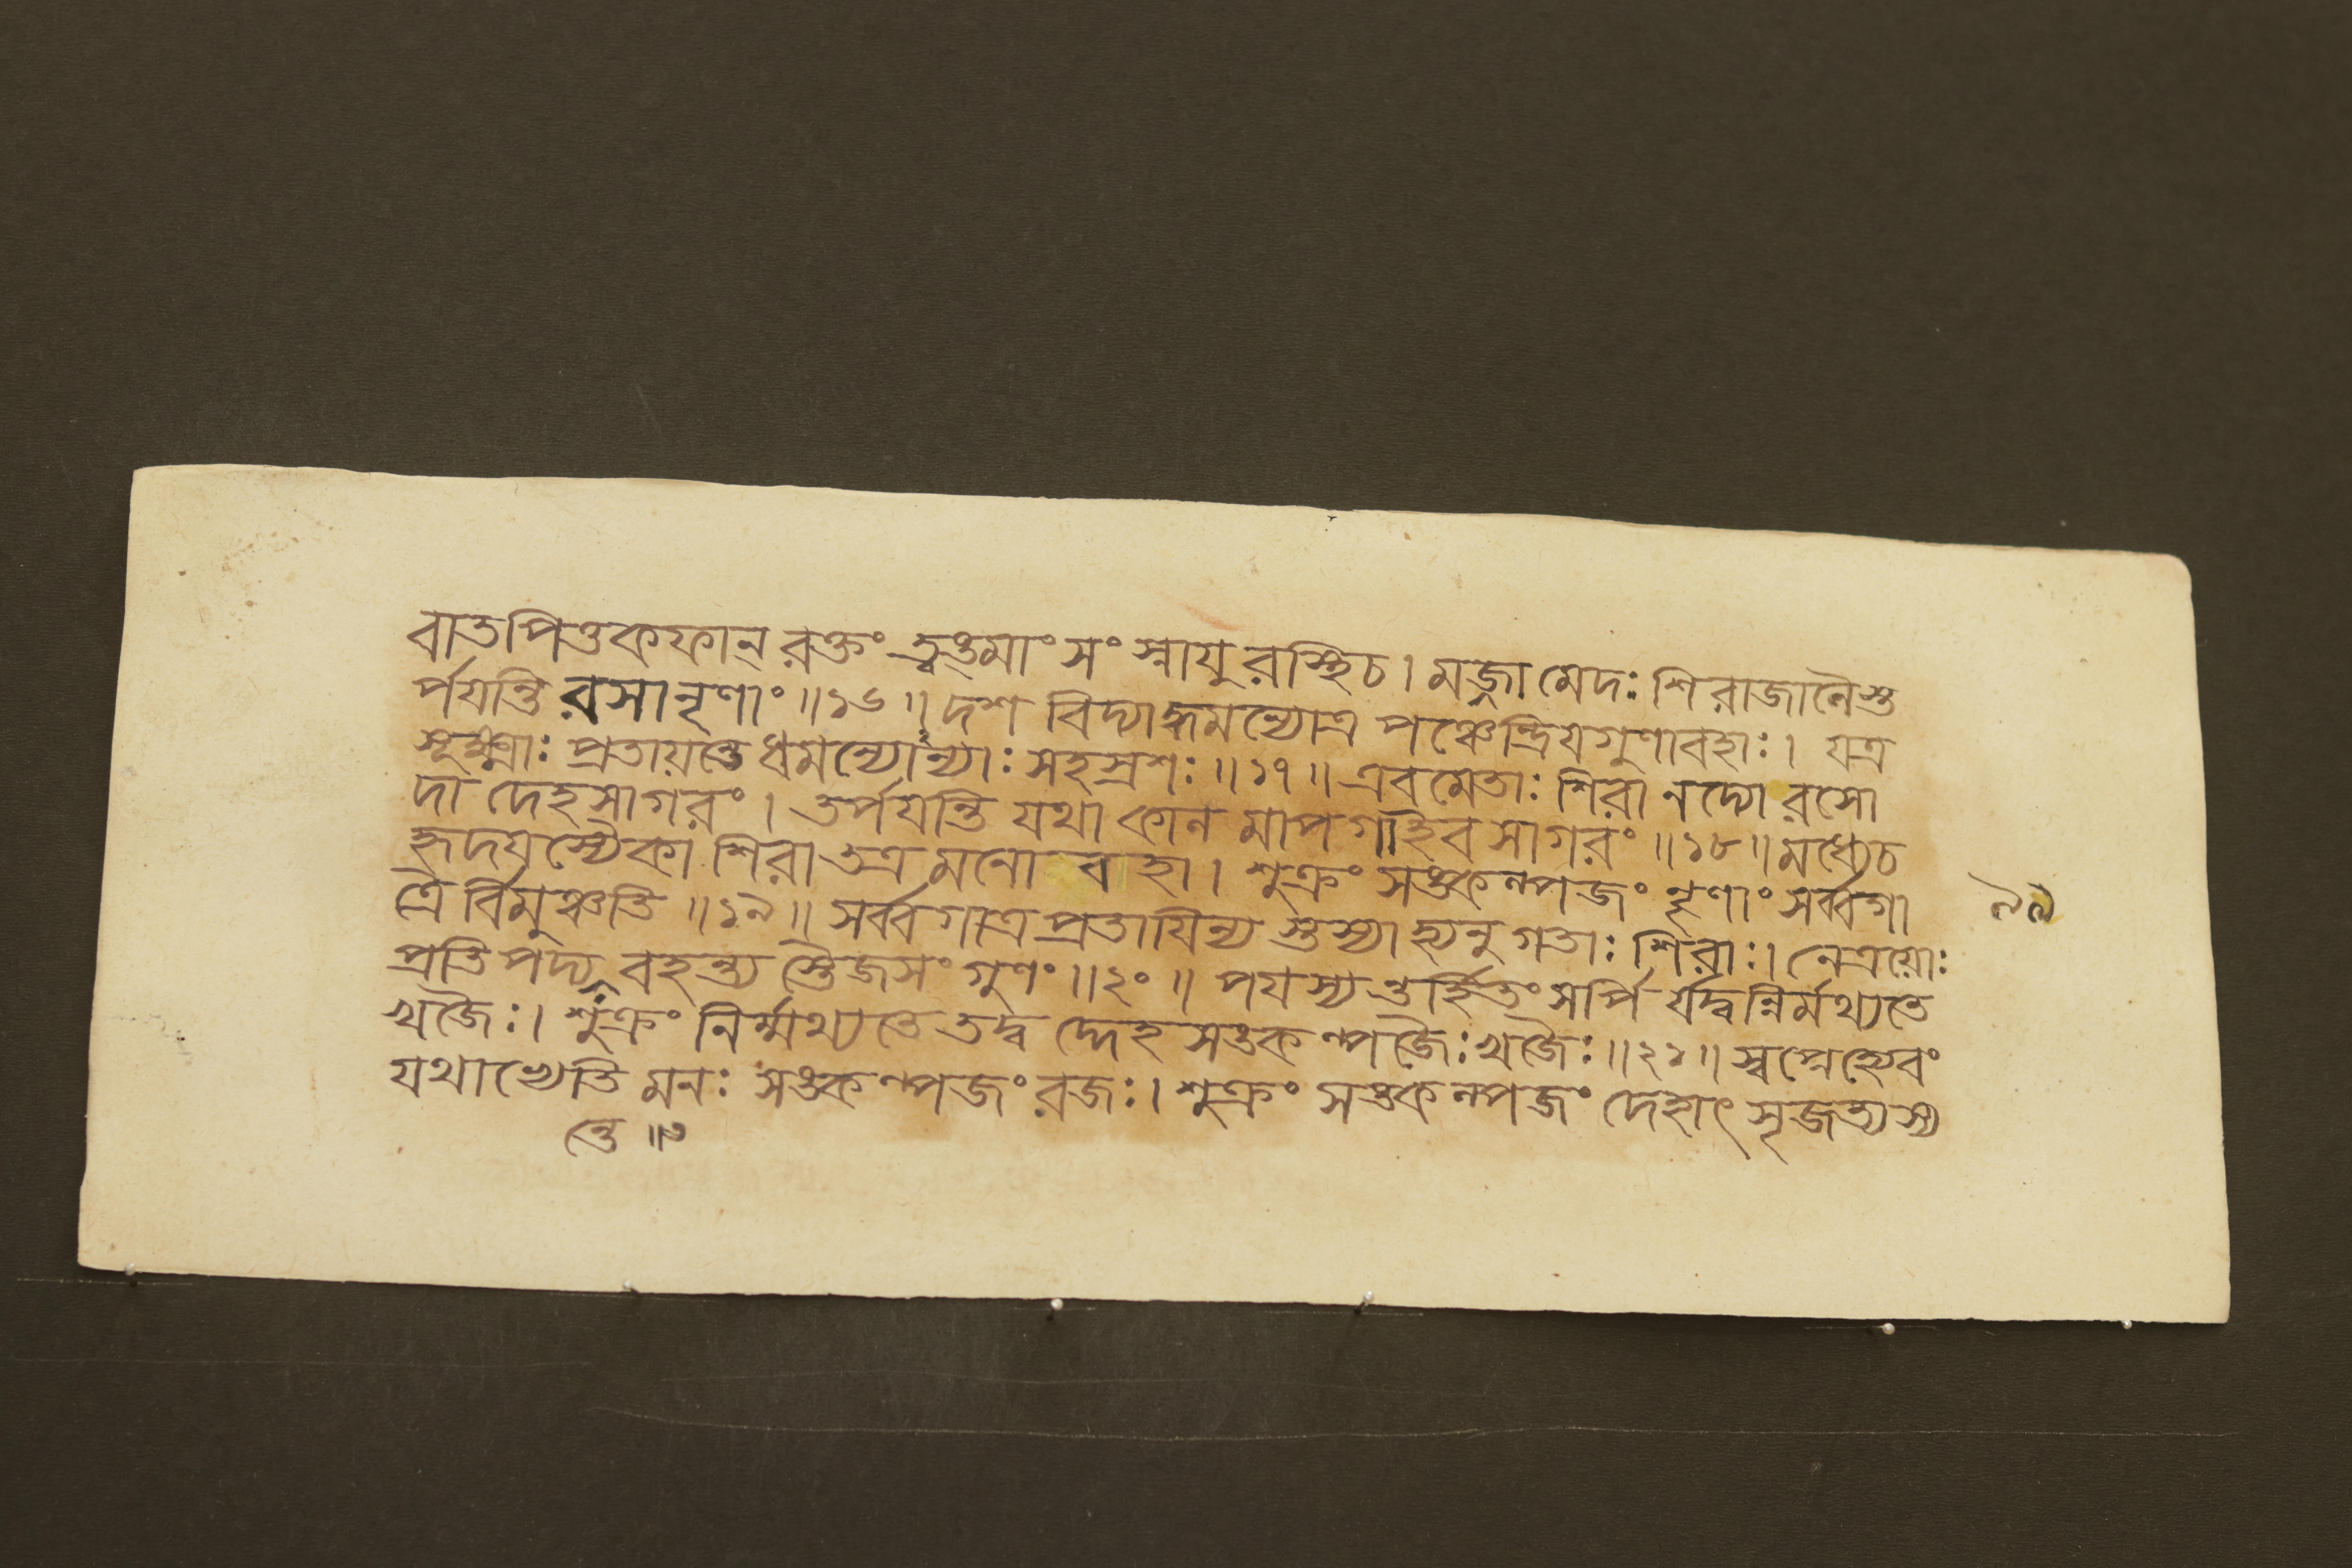 বাতপিত্তকফান্ রক্তং ত্বঙ্মাংসং স্নাযুরস্থিচ। মজ্জা মেদঃ শিরাজালৈস্ত
র্পযন্তি রসানৃণাং॥১৬॥ দশ বিদ্যাদ্ধমন্যোত্র পঞ্চেন্দ্রিযগুণাবহাঃ। যত্র
সূক্ষ্মাঃ প্রতায়ন্তে ধমন্যোন্যাঃ সহস্রশঃ॥১৭॥ এবমেতাঃ শিরা নদ্যো রসো
দা দেহসাগরং। তর্পযন্তি যথা কাল মাপগাইব সাগরং॥১৮॥ মধ্যেচ
হৃদযস্যৈকা শিরা তত্র মনোবাহা। শুক্রং সঙকল্পজং নৃণাং সর্ব্বগা
ত্রৈর্বিমুঞ্চতি॥১৯॥ সর্ব্বগাত্রপ্রতাযিন্য স্তস্যাহ্যনুগতাঃ শিরাঃ। নেত্রয়োঃ
প্রতিপদ্য বহন্ত্য স্তৈজসং গুণং॥২০॥ পযস্যন্তর্হিতং সর্পি র্যদ্বন্নির্মথ্যতে
খজৈঃ। শুক্রং নির্ম্মথ্যতে তদ্ব দ্দেহসঙকল্পজৈঃ খজৈঃ॥২১॥ স্বপ্নেহ্যেবং
যথাভ্যেতি মনঃ সঙকল্পজং রজঃ। শুক্রং সঙকল্পজং দেহাৎ সৃজত্যস্য
ন্তে॥৩
৯৯